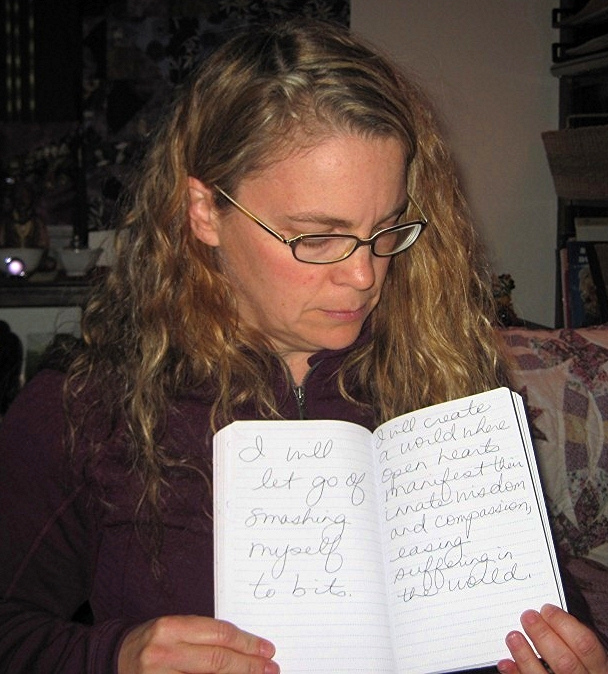 I will
let go of
smashing
myself
to bits.
I will create
a world where
open hearts
manifest their
innate wisdom
and compassion,
easing
suffering in
the world.